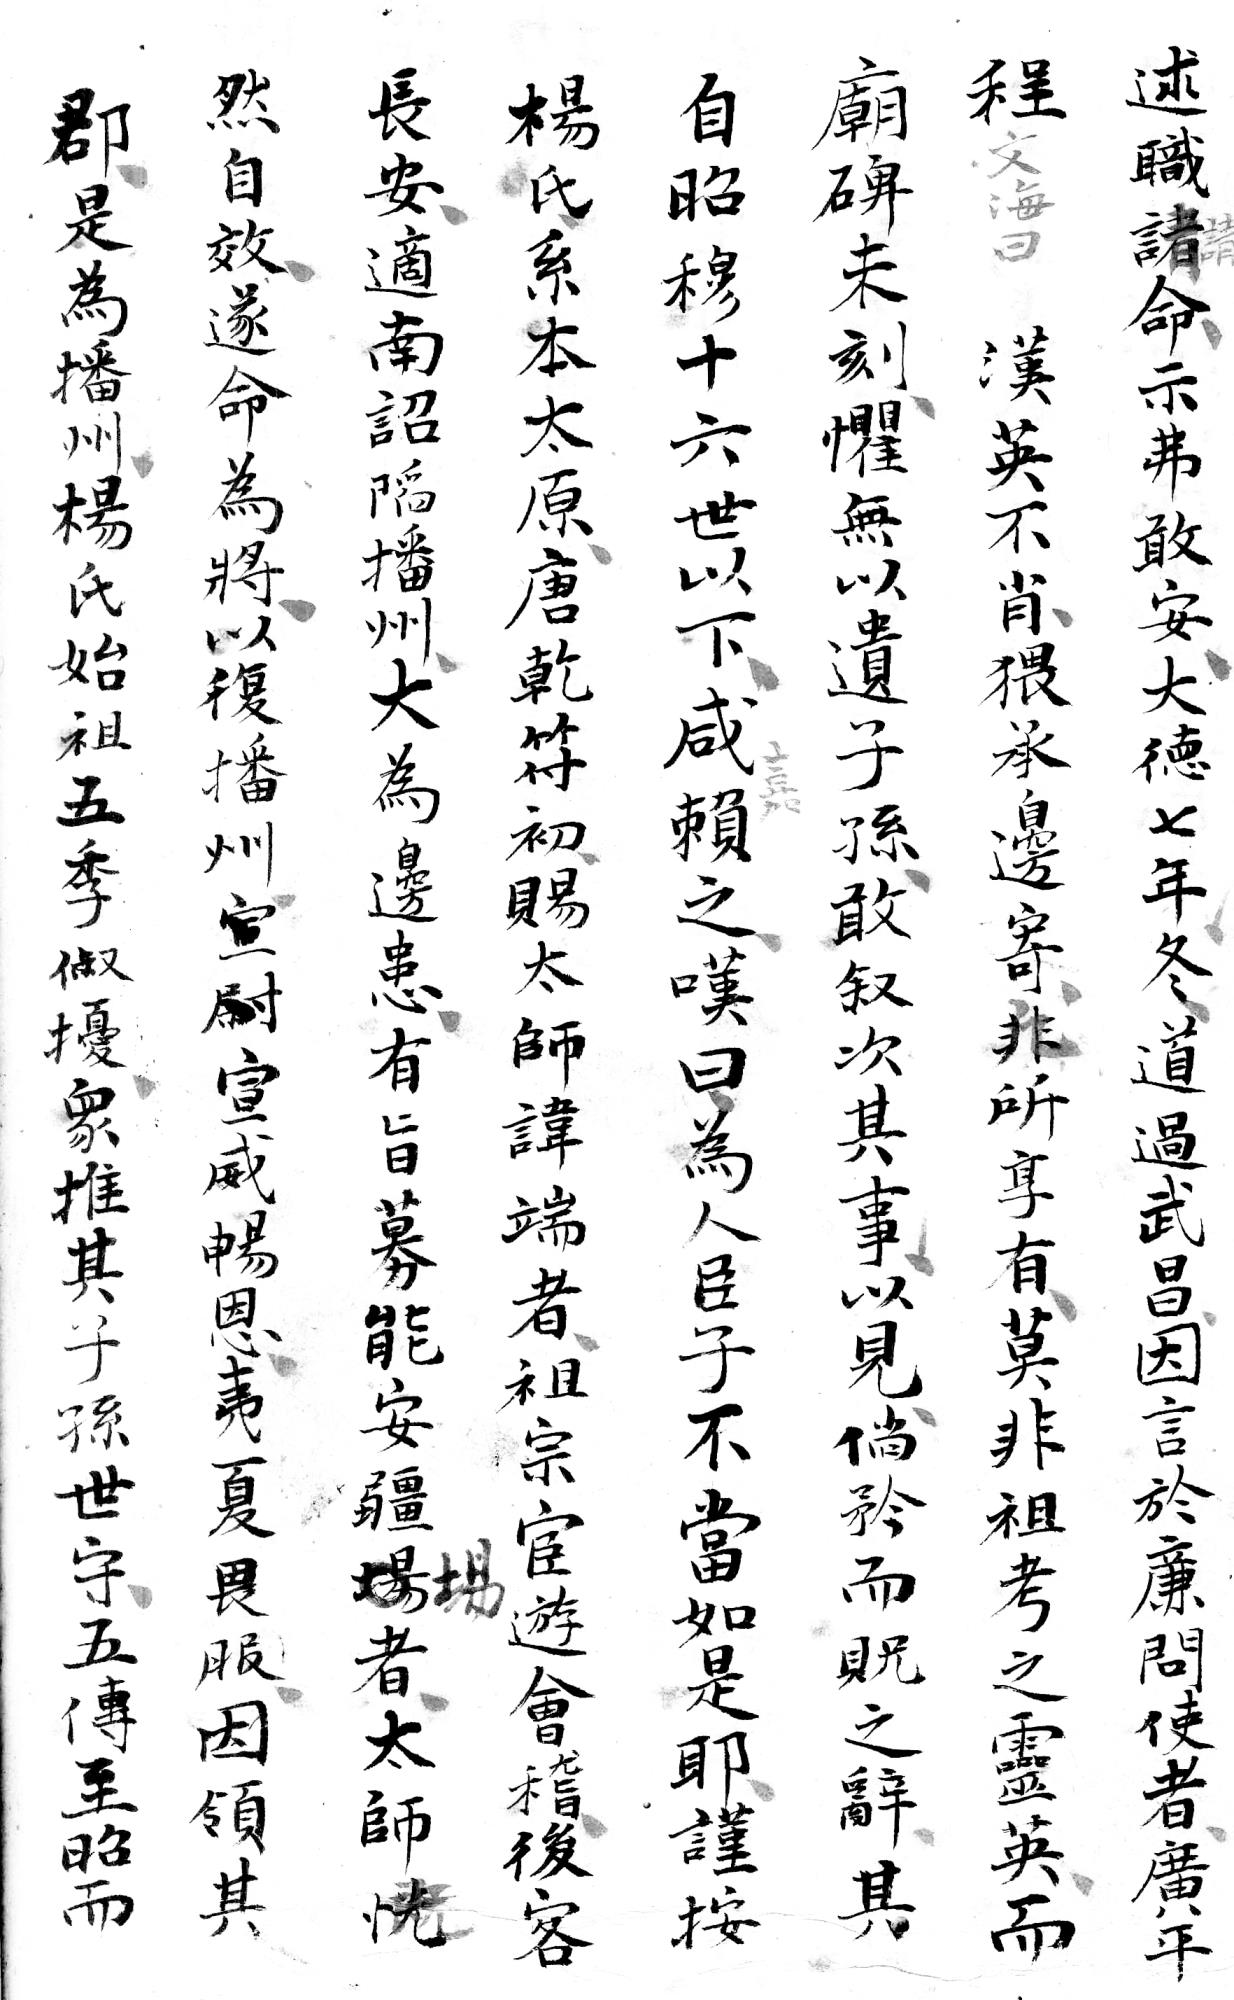 述職諸命示弗敢安大德七年冬道過武昌因言於廉問使者廣平
請
程文海曰漢英不肖猥承邊寄非所享有莫非祖考之靈英而
廟碑未刻懼無以遺子孫敢叙次其事以見倘矜而貺之辭其
自昭穆十六世以下咸賴之嘆曰為人臣子不當如是耶謹按
嘉
楊氏系本太原唐乾符初賜太師諱端者祖宗宦遊會稽後客
長安適南詔陷播州大為邊患有旨募能安疆場者太師恍
場
然自效遂命為將以復播州宣尉宣威暢恩夷夏畏服因領其
郡是為播州楊氏始祖五季俶擾眾推其子孫世守五傳至昭而